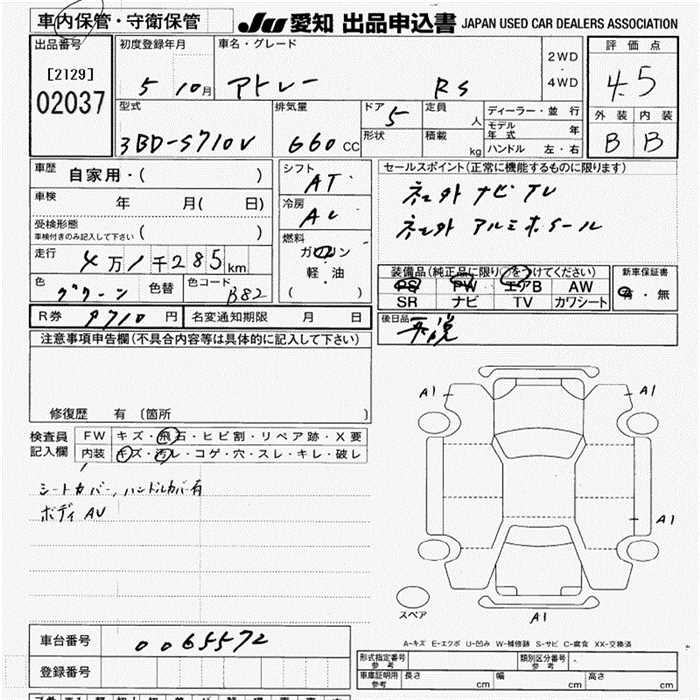 車内保管・守衛保管
JU 愛知 出品申込書 JAPAN USED CAR DEALERS ASSOCIATION
出品番号
[2129]
02037
初度登録年月
5 10月
車名・グレード
アトレー RS
2WD
・
4WD
評価点
4.5
外装 内装
B B
型式
3BD-S710V
排気量
660 CC
ドア
5
形状
定員
人
積載
kg
ディーラー・並行
モデル年式 年
ハンドル 左・右
車歴 自家用・( )
車検 年 月( 日)
受検形態
車検付きのみ記入して下さい ( )
走行 4万1千285km
色 グリーン 色替 色コード B82
シフト
AT
冷房
燃料
ガソリン
・
軽油
( )
セールスポイント(正常に機能するものに限ります)
ナビTV
アルミホイール
装備品(純正品に限り○をつけてください)
PS PW エアB AW
SR ナビ TV カワシート
新車保証書
有・無
R券 9710円
名変通知期限 月 日
後日品
注意事項申告欄(不具合内容等は具体的に記入して下さい)
修復歴 有 〔箇所 〕
検査員記入欄
FW キズ・飛石・ヒビ割・リペア跡・X要
内装 キズ・汚レ・コゲ・穴・スレ・キレ・破レ
シートカバー、ハンドルカバー有
ボディ AU
A1 A1
A1
スペア
A1
A-キズ E-エクボ U-凹み W-補修跡 S-サビ C-腐食 XX-交換済
車台番号 0065572
登録番号
形式指定番号
参考
類別区分番号
参考
車庫証明用
参考
長さ cm 幅 cm 高さ cm